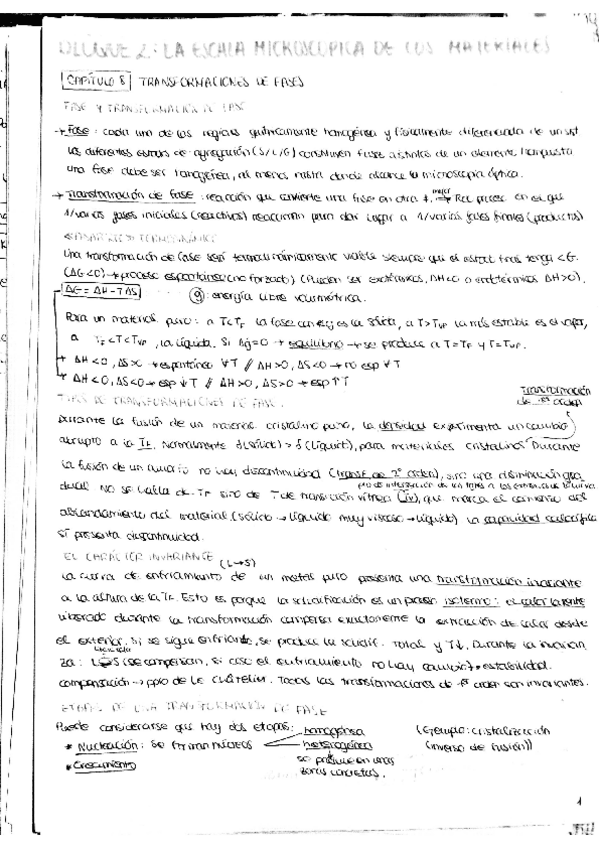 BLOQUE 2: LA ESCALA MICROSCÓPICA DE LOS MATERIALES
CAPÍTULO 8 TRANSFORMACIONES DE FASES
FASE Y TRANSFORMACIÓN DE FASE
→ Fase: cada una de las regiones químicamente homogénea y físicamente diferenciada de un sist
los diferentes estados de agregación (S/L/G) constituyen fases distintas de un elemento/compuesto
una fase debe ser homogénea, al menos hasta donde alcance la microscopía óptica.
→ Transformación de fase: reacción que convierte una fase en otra proceso en el que
1/varias fases iniciales (reactivos) reaccionan para dar lugar a 1/varias fases finales (productos)
Una transformación de fase será termodinámicamente viable siempre que el estado final tenga <G.
(ΔG<0) → proceso espontáneo (no forzado) (Pueden ser exotérmicas, ΔH<0 o endotérmicas ΔH>0).
ΔG = ΔH - TΔS
g: energía libre volumétrica.
Para un material puro: a T<TF la fase con es la sólida, a T>TVP la más estable es el vapor,
a TF<T<TVP, la líquida. Si Δg=0 → equilibrio → se produce a T=TF y T=TVP.
+ ΔH<0, ΔS>0 → espontáneo ∀T // ΔH>0, ΔS<0 → no esp ∀T
+ ΔH<0, ΔS<0 → esp ↓T // ΔH>0, ΔS>0 → esp ↑T
Transformación
de 1er orden
TIPOS DE TRANSFORMACIONES DE FASE.
Durante la fusión de un material cristalino puro, la densidad experimenta un cambio
abrupto a la TF. Normalmente (sólido) > (líquido), para materiales cristalinos. Durante
la fusión de un no hay discontinuidad (transf de 2º orden), sino una disminución gra
dual. No se habla de TF sino de T de transición vítrea, que marca el comienzo del
ablandamiento del material (sólido → líquido muy viscoso → líquido). La capacidad calorífica
sí presenta discontinuidad.
EL CARÁCTER INVARIANTE
(L→S)
La curva de enfriamiento de un metal puro presenta una transformación invariante
a la altura de la TF. Esto es porque la solidificación es un proceso isotermo: el calor latente
liberado durante la transformación compensa exactamente la extracción de calor desde
el exterior. Si se sigue enfriando, se produce la solidif. total y T↓. Durante la invarian
za: L S (se compensan, si cesa el enfriamiento no hay cambio) → estabilidad.
compensación → ppio de Le Châtelier. Todas las transformaciones de 1er orden son invariantes.
ETAPAS DE UNA TRANSFORMACIÓN DE FASE
Puede considerarse que hay dos etapas: homogénea (Ejemplo: cristalización
* Nucleación: se forman núcleos heterogénea (inverso de fusión))
* Crecimiento se produce en unas
zonas concretas.
1